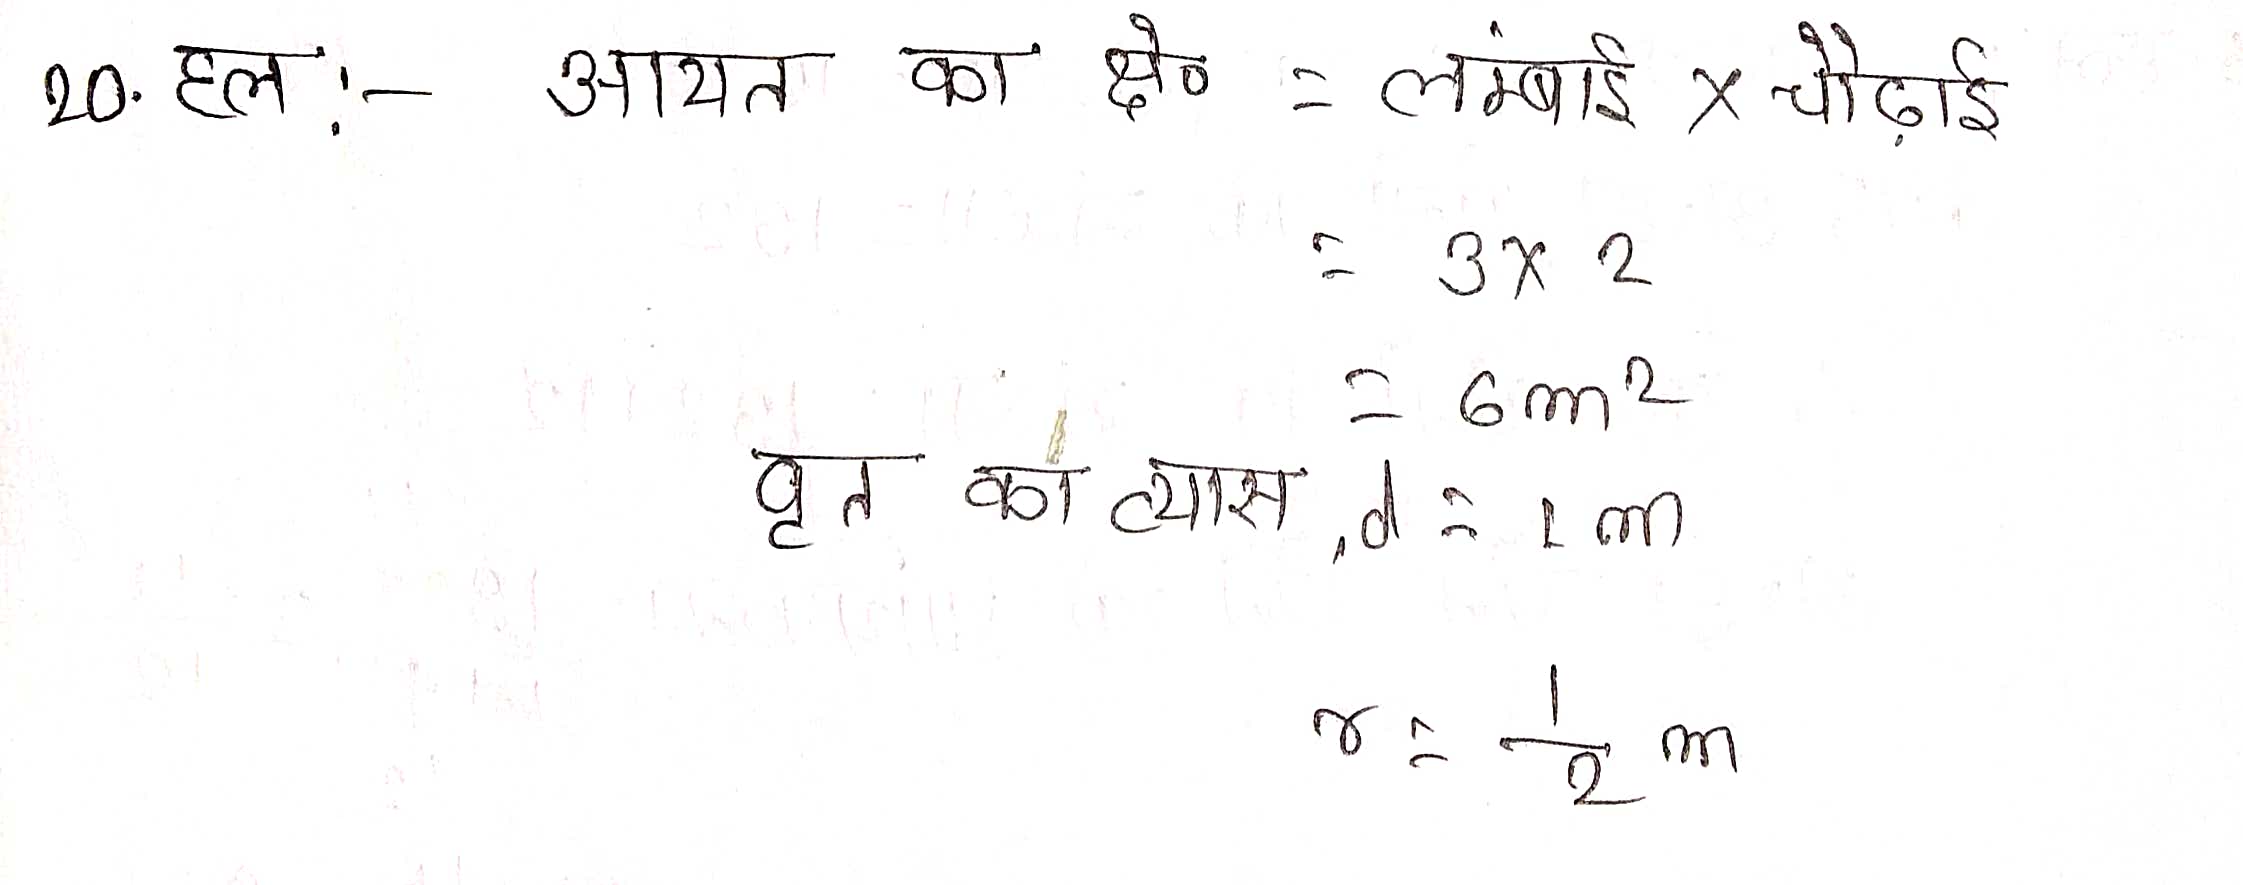 20. हल :- आयत का क्षे० = लंम्बाई × चौढ़ाई
= 3 × 2
= 6 m²
वृत का व्यास, d = 1 m
r = 1/2 m